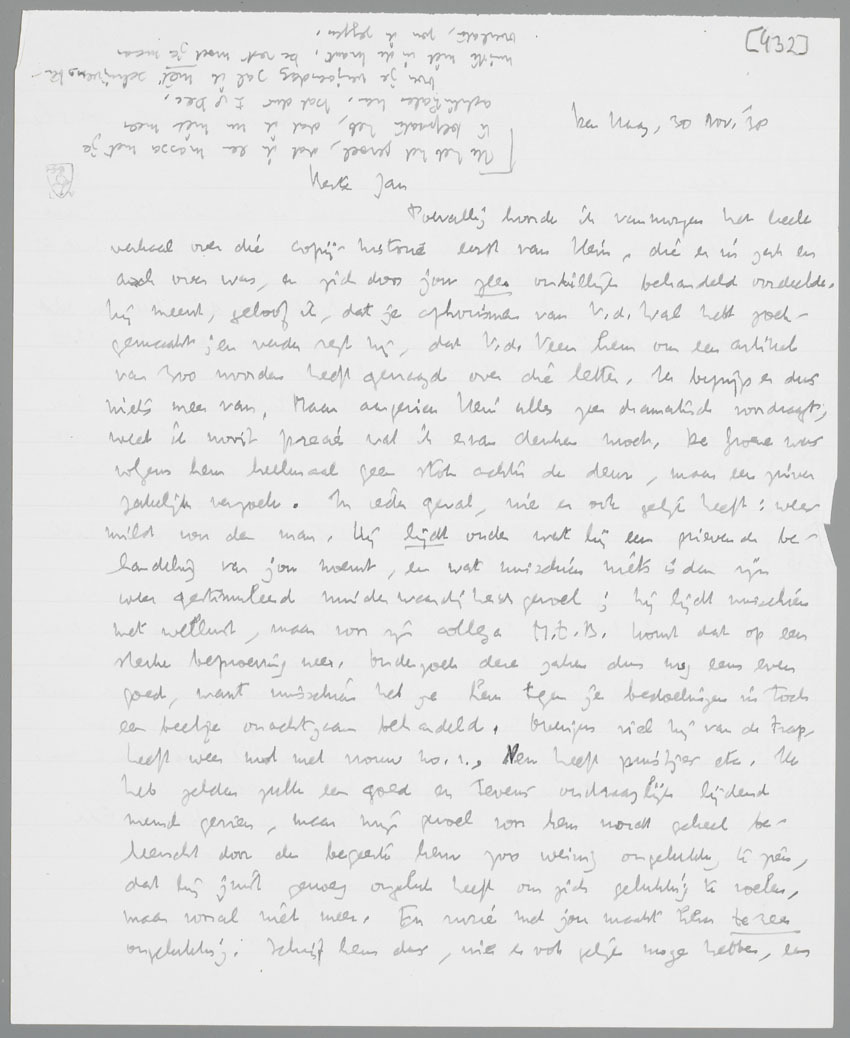 [432]
den Haag, 30 Nov. '30
Beste Jan
Toevallig hoorde ik vanmorgen het heele
verhaal over die copij-historie eerst van Hein, die er in zak en
asch over was, en zich door jou zeer onbillijk behandeld oordeelde.
Hij meent, geloof ik, dat je aphorismen van V.d. Wal hebt zoek-
gemaakt; en verder zegt hij, dat V.d. Veen hem om een artikel
van 300 woorden heeft gevraagd over die letter. Ik begrijp er dus
niets meer van. Maar aangezien Hein alles zeer dramatisch voordraagt,
weet ik nooit precies wat ik ervan denken moet. De Groene was
volgens hem heelemaal geen stok achter de deur, maar een zuiver
zakelijk verzoek. In ieder geval, wie er ook gelijk heeft: wees
mild voor den man. Hij lijdt onder wat hij een grievende be-
handeling van jou noemt, en wat misschien niets is dan zijn
weer gestimuleerd minderwaardigheidsgevoel; hij lijdt misschien
met wellust, maar voor zijn collega M.t.B. komt dat op een
sterke beproeving neer. Onderzoek deze zaken dus nog eens even
goed, want misschien heb je hem tegen je bedoelingen in toch
een beetje onachtzaam behandeld. Overigens viel hij van de trap,
heeft weer mot met vrouw no. 1, heeft puistjes etc. Ik
heb zelden zulk een goed en tevens ondraaglijk lijdend
mensch gezien, maar mijn gevoel voor hem wordt geheel be-
heerscht door de begeerte hem zoo weinig ongelukkig te zien,
dat hij juist genoeg ongeluk heeft om zich gelukkig te voelen,
maar vooral niet meer. En ruzie met jou maakt hem te zeer
ongelukkig. Schrijf hem dus, wie er ook gelijk moge hebben, een
[Ik heb het gevoel, dat ik een massa met je
te bepraten heb, dat ik nu niet meer
achterhalen kan. Wat dus tot Dec.
Over je verjaardag zal ik niet schrijven
niet in de krant, de rest moet je maar